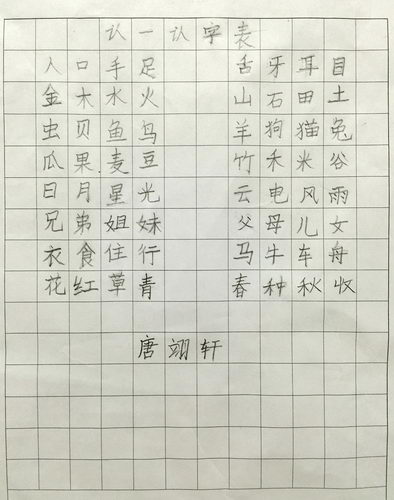 认一认字表
人口手足 舌牙耳目
金木水火 山石田土
虫贝鱼鸟 羊狗猫兔
瓜果麦豆 竹禾米谷
日月星光 云电风雨
兄弟姐妹 父母儿女
衣食住行 马牛车舟
花红草青 春种秋收
唐翊轩